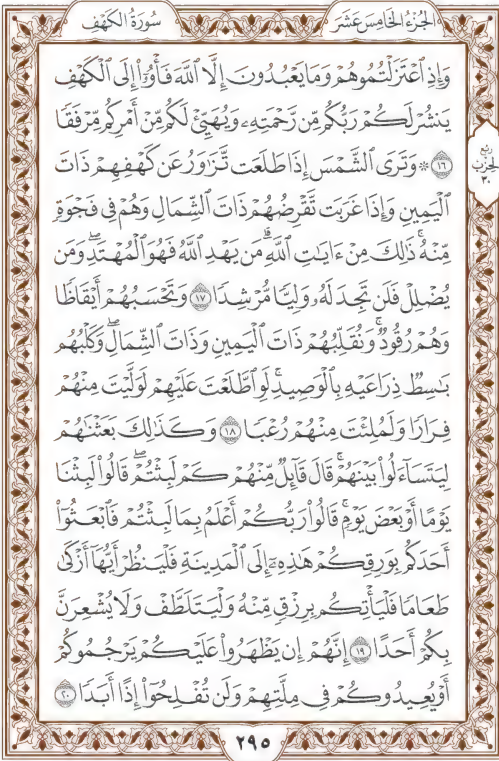 الجُزْءُ الخَامِسَ عَشَرَ
سُورَةُ الكَهْفِ
وَإِذِ ٱعْتَزَلْتُمُوهُمْ وَمَا يَعْبُدُونَ إِلَّا ٱللَّهَ فَأْوُۥٓا۟ إِلَى ٱلْكَهْفِ
يَنشُرْ لَكُمْ رَبُّكُم مِّن رَّحْمَتِهِۦ وَيُهَيِّئْ لَكُم مِّنْ أَمْرِكُم مِّرْفَقًا
١٦ ۞ وَتَرَى ٱلشَّمْسَ إِذَا طَلَعَت تَّزَٰوَرُ عَن كَهْفِهِمْ ذَاتَ
ربع
الحزب
٣٠
ٱلْيَمِينِ وَإِذَا غَرَبَت تَّقْرِضُهُمْ ذَاتَ ٱلشِّمَالِ وَهُمْ فِى فَجْوَةٍ
مِّنْهُ ۚ ذَٰلِكَ مِنْ ءَايَٰتِ ٱللَّهِ ۗ مَن يَهْدِ ٱللَّهُ فَهُوَ ٱلْمُهْتَدِ ۖ وَمَن
يُضْلِلْ فَلَن تَجِدَ لَهُۥ وَلِيًّا مُّرْشِدًا ١٧ وَتَحْسَبُهُمْ أَيْقَاظًا
وَهُمْ رُقُودٌ ۚ وَنُقَلِّبُهُمْ ذَاتَ ٱلْيَمِينِ وَذَاتَ ٱلشِّمَالِ ۖ وَكَلْبُهُم
بَٰسِطٌ ذِرَاعَيْهِ بِٱلْوَصِيدِ ۚ لَوِ ٱطَّلَعْتَ عَلَيْهِمْ لَوَلَّيْتَ مِنْهُمْ
فِرَارًا وَلَمُلِئْتَ مِنْهُمْ رُعْبًا ١٨ وَكَذَٰلِكَ بَعَثْنَٰهُمْ
لِيَتَسَآءَلُوا۟ بَيْنَهُمْ ۚ قَالَ قَآئِلٌ مِّنْهُمْ كَمْ لَبِثْتُمْ ۖ قَالُوا۟ لَبِثْنَا
يَوْمًا أَوْ بَعْضَ يَوْمٍ ۚ قَالُوا۟ رَبُّكُمْ أَعْلَمُ بِمَا لَبِثْتُمْ فَٱبْعَثُوٓا۟
أَحَدَكُم بِوَرِقِكُمْ هَٰذِهِۦٓ إِلَى ٱلْمَدِينَةِ فَلْيَنظُرْ أَيُّهَآ أَزْكَىٰ
طَعَامًا فَلْيَأْتِكُم بِرِزْقٍ مِّنْهُ وَلْيَتَلَطَّفْ وَلَا يُشْعِرَنَّ
بِكُمْ أَحَدًا ١٩ إِنَّهُمْ إِن يَظْهَرُوا۟ عَلَيْكُمْ يَرْجُمُوكُمْ
أَوْ يُعِيدُوكُمْ فِى مِلَّتِهِمْ وَلَن تُفْلِحُوٓا۟ إِذًا أَبَدًا ٢٠
٢٩٥